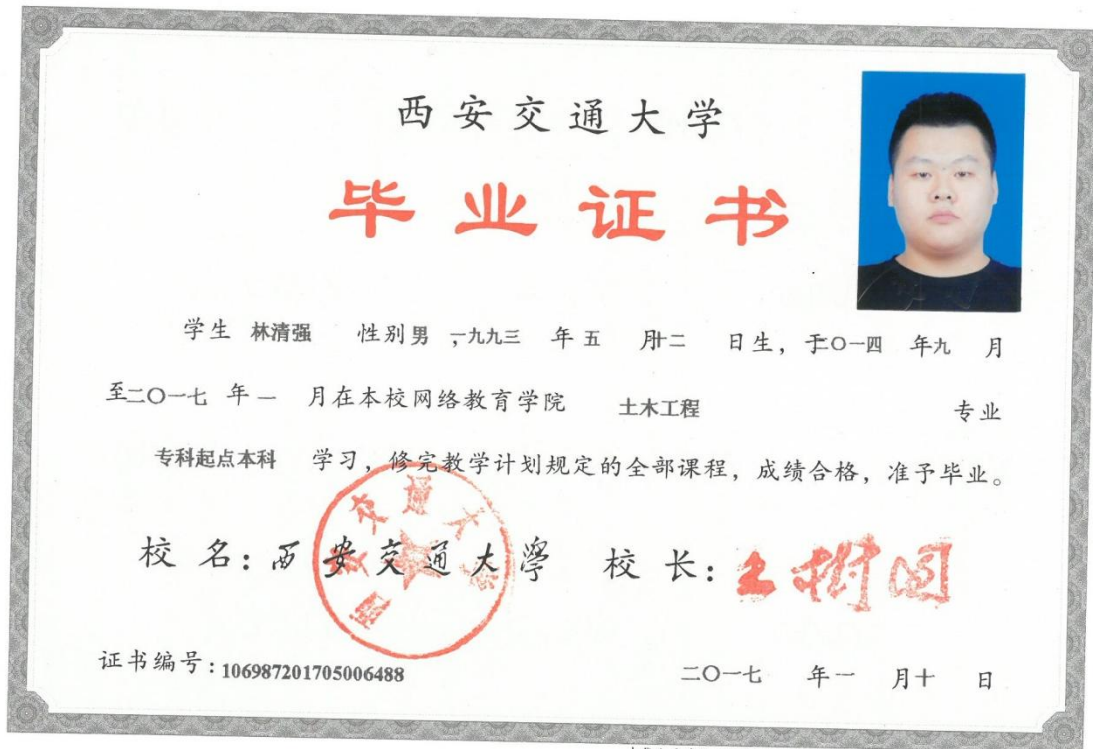 西安交通大学
毕业证书
学生 林清强 性别男 ,一九九三 年五 月十二 日生，于二〇一四 年九 月
至二〇一七 年一 月在本校网络教育学院 土木工程 专业
专科起点本科 学习，修完教学计划规定的全部课程，成绩合格，准予毕业。
西安交通大学
校 名：西安交通大學 校 长：王树国
证书编号：106987201705006488 二〇一七 年一 月十 日